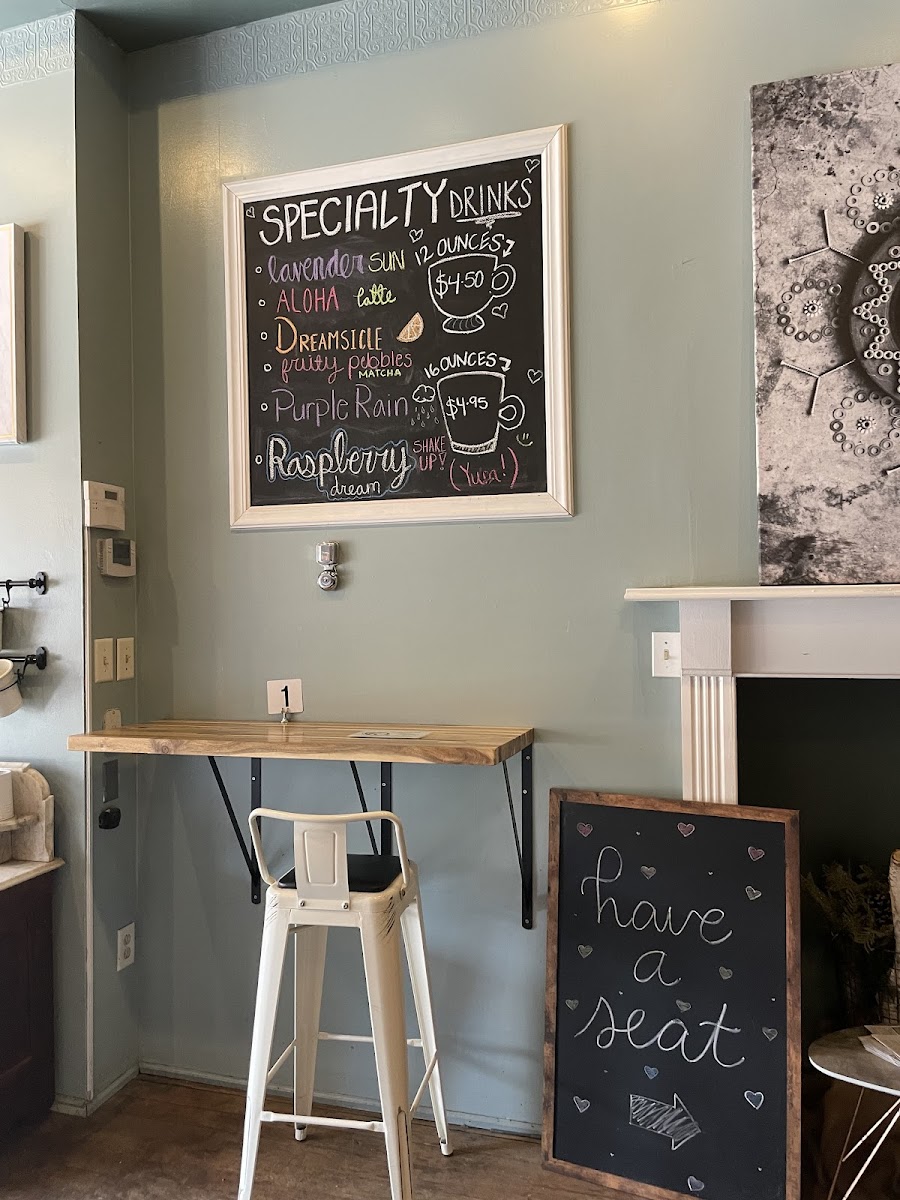 SPECIALTY DRINKS
lavender SUN
ALOHA latte
DREAMSICLE
fruity pebbles
MATCHA
Purple Rain
Raspberry
dream
SHAKE
UP!
12 OUNCES
$4.50
16 OUNCES
$4.95
1
have
a
seat